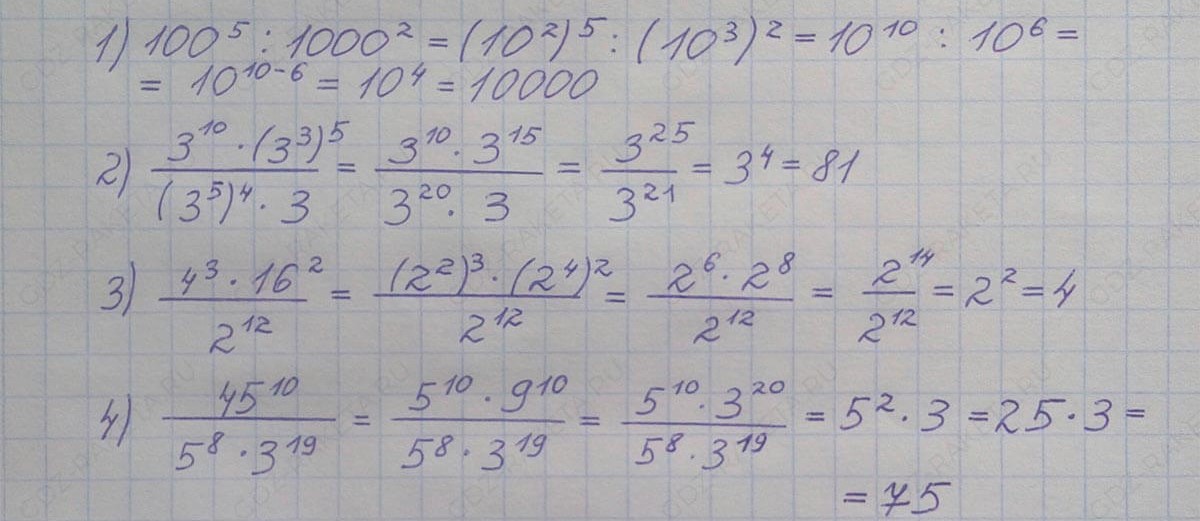 1) 100⁵ : 1000² = (10²)⁵ : (10³)² = 10¹⁰ : 10⁶ =
= 10¹⁰⁻⁶ = 10⁴ = 10000
2) (3¹⁰ · (3³)⁵)/((3⁵)⁴ · 3) = (3¹⁰ · 3¹⁵)/(3²⁰ · 3) = 3²⁵/3²¹ = 3⁴ = 81
3) (4³ · 16²)/2¹² = ((2²)³ · (2⁴)²)/2¹² = (2⁶ · 2⁸)/2¹² = 2¹⁴/2¹² = 2² = 4
4) 45¹⁰/(5⁸ · 3¹⁹) = (5¹⁰ · 9¹⁰)/(5⁸ · 3¹⁹) = (5¹⁰ · 3²⁰)/(5⁸ · 3¹⁹) = 5² · 3 = 25 · 3 =
= 75